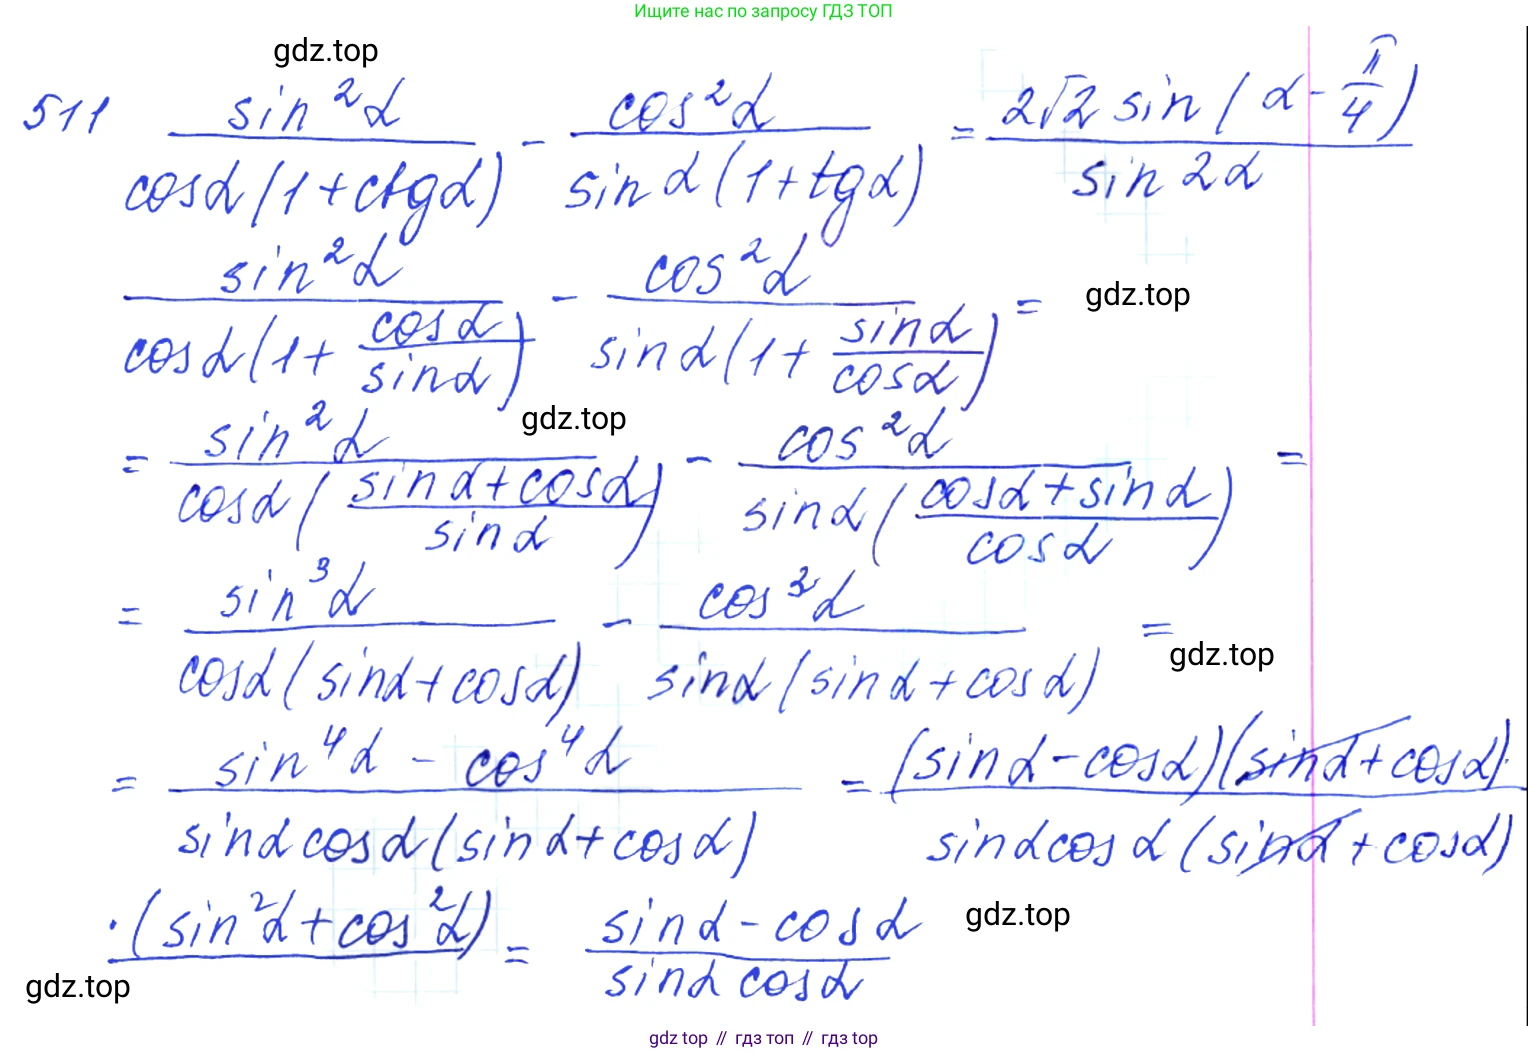 Ищите нас по запросу ГДЗ ТОП
gdz.top
511 sin²α / cosα(1+ctgα) - cos²α / sinα(1+tgα) = 2√2 sin(α - π/4) / sin2α
sin²α / cosα(1 + cosα/sinα) - cos²α / sinα(1 + sinα/cosα) =
gdz.top
gdz.top
= sin²α / cosα((sinα+cosα)/sinα) - cos²α / sinα((cosα+sinα)/cosα) =
= sin³α / cosα(sinα+cosα) - cos³α / sinα(sinα+cosα) =
gdz.top
= sin⁴α - cos⁴α / sinαcosα(sinα+cosα) = (sinα-cosα)(sinα+cosα)· / sinαcosα(sinα+cosα)
·(sin²α+cos²α) = sinα-cosα / sinαcosα
gdz.top
gdz.top
gdz top // гдз топ // гдз top